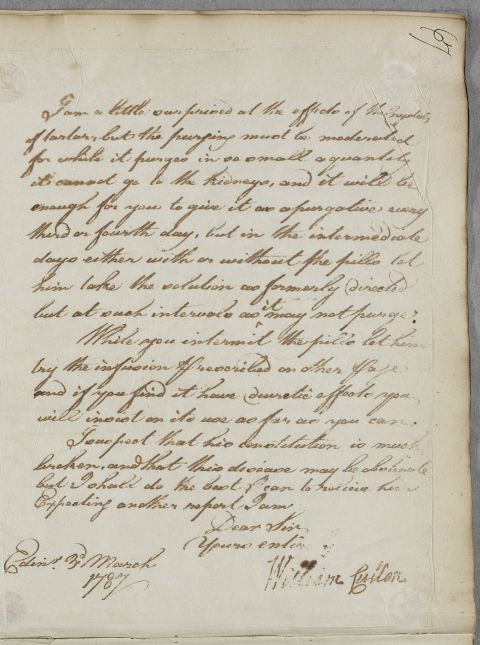 I am a little surprised at the effects of the Crystals
of tartar, but the purging must be moderated
for while it purges in so small a quantity
it cannot go to the kidneys, and it will be
enough for you to give it as a purgative every
third or fourth day, but in the intermediate
days either with or without the pills let
him take the solution as formerly directed
but at such intervals as it may not purge.
While you intermit the pills let him
try the infusion prescribed on other Page
and if you find it have diuretic effects you
will insist on its use as far as you can.
I suspect that his constitution is much
broken, and that this disease may be obstinate
but I shall do the best I can to relieve him
Expecting another report I am
Dear Sir
Yours entir
Edinr. 3d March
1787
William Cullen